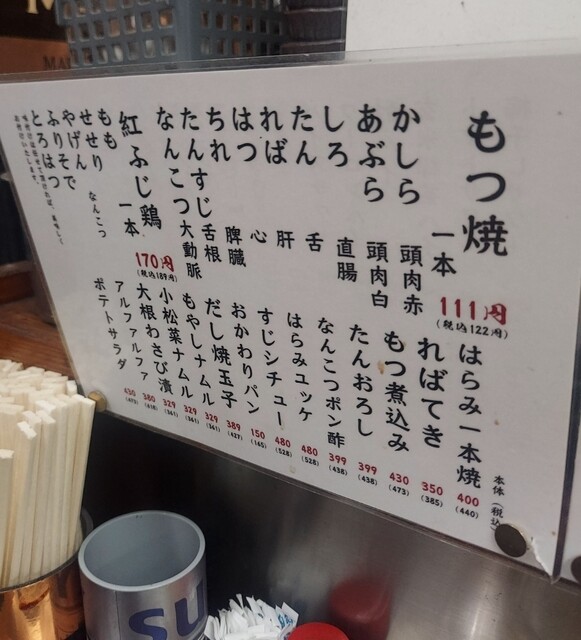 もつ焼
一本 111円
(税込122円)
かしら 頭肉赤
あぶら 頭肉白
しろ 直腸
たん 舌
ればー 肝
はつ 心
ちれ 脾臓
たんすじ 舌根
なんこつ 大動脈
紅ふじ鶏
一本 170円
(税込189円)
もも
せせり
やげん なんこつ
ふりそで
とろはつ
本体(税込)
はらみ一本焼 400 (440)
ればてき 350 (385)
もつ煮込み 430 (473)
たんおろし 399 (438)
なんこつポン酢 399 (438)
はらみユッケ 480 (528)
すじシチュー 480 (528)
おかわりパン 150 (165)
だし焼玉子 389 (427)
もやしナムル 329 (361)
小松菜ナムル 329 (361)
大根わさび漬 329 (361)
アルファルファ 380 (418)
ポテトサラダ 430 (473)
su